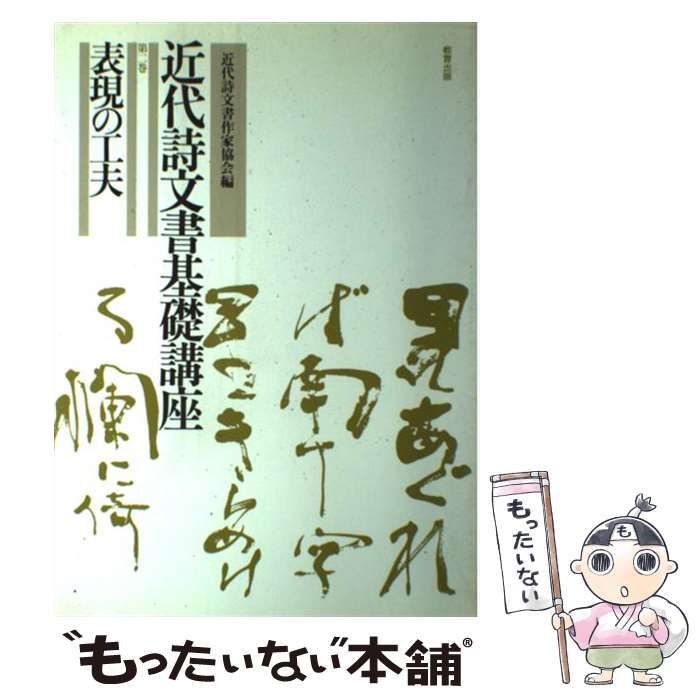 教育出版
近代詩文書作家協会編
近代詩文書基礎講座
第二巻
表現の工夫
見あぐれ
ば南十字
きらめけ
る欄に倚
もったいない
も
"もったいない"本舗®